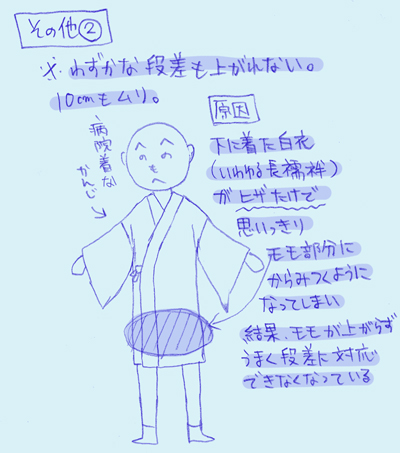 その他②
※わずかな段差も上がれない。
10cmもムリ。
病院着な
かんじ
原因
下に着た白衣
(いわゆる長襦袢)
がヒザたけで
思いっきり
モモ部分に
からみつくように
なってしまい
結果、モモが上がらず
うまく段差に対応
できなくなっている